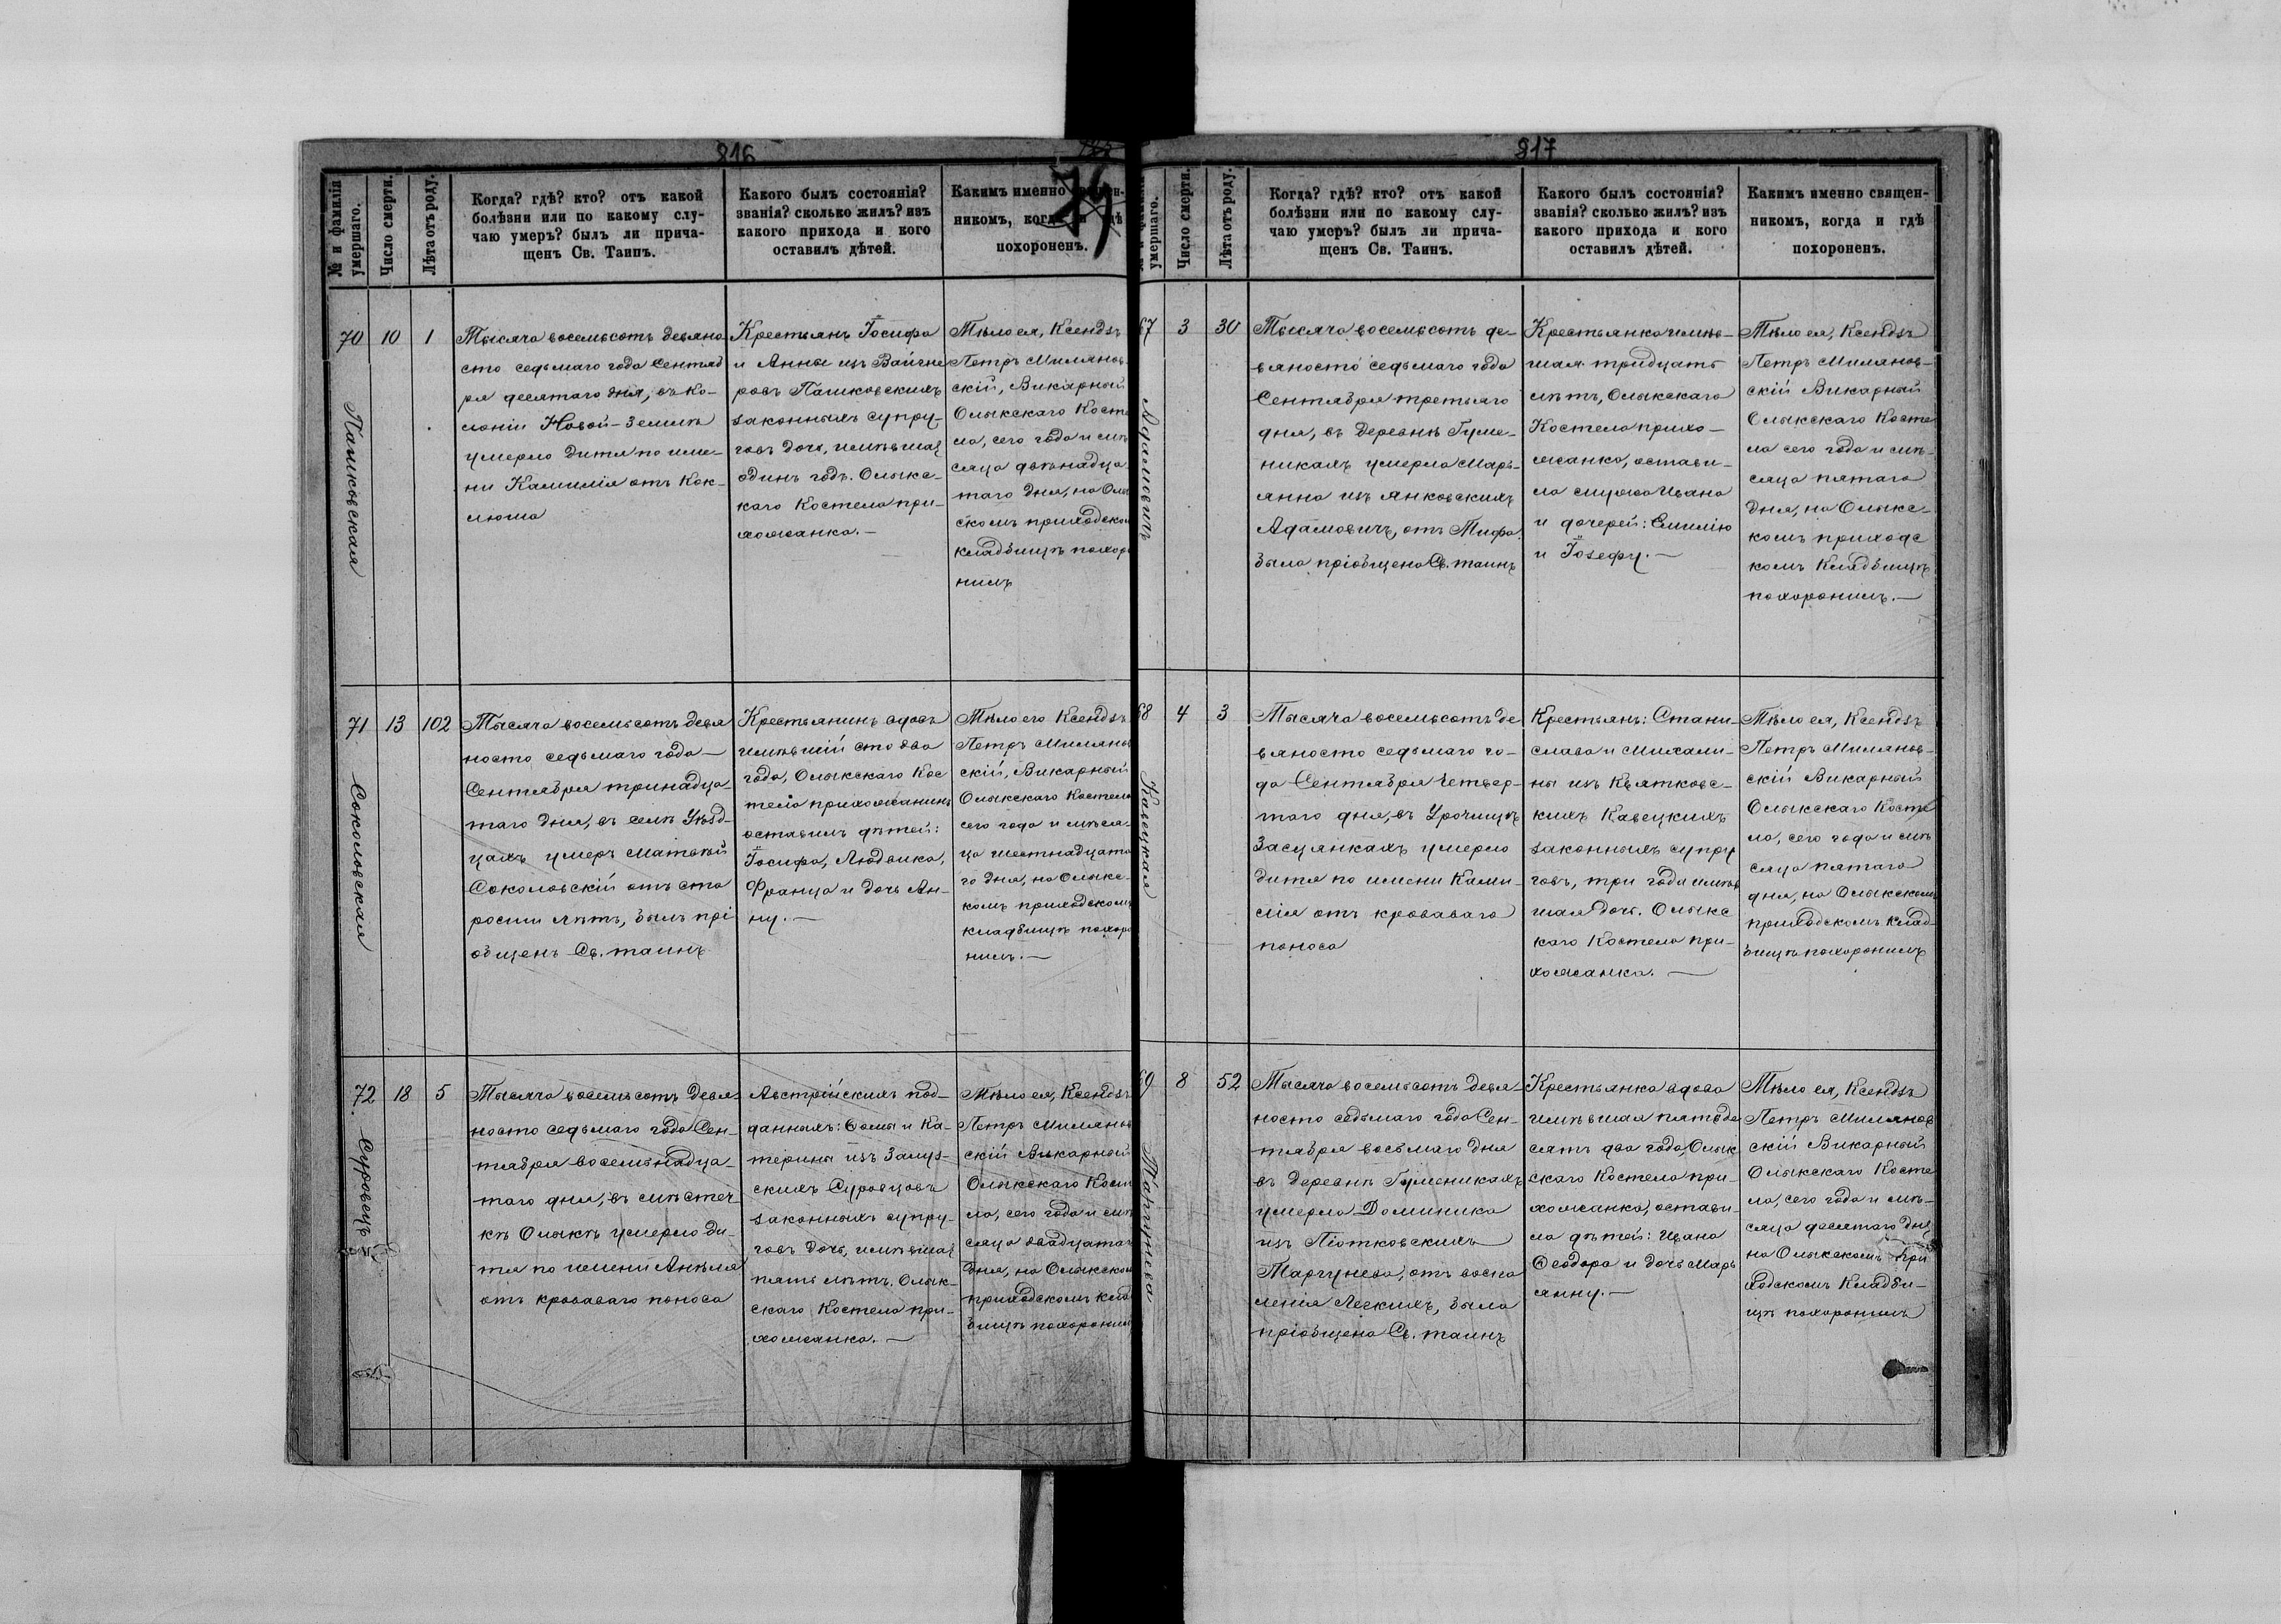 816
74
№ и фамилія умершаго.
Число смерти.
Лѣта отъ роду.
Когда? гдѣ? кто? отъ какой
болѣзни или по какому слу-
чаю умеръ? былъ ли прича-
щенъ Св. Таинъ.
Какого былъ состоянія?
званія? сколько жилъ? изъ
какого прихода и кого
оставилъ дѣтей.
Какимъ именно
никомъ,
похороненъ.
70
Пашковская
10
1
Тысяча восемьсотъ девяно
сто седьмаго года Сентяб
ря десятаго дня, въ Ко-
лоніи Новой-Землѣ
умерло дитя по име-
ни Камилія отъ Кок-
люша
Крестьянъ Іосифа
и Анны изъ Вайгне
ровъ Пашковскихъ
законныхъ супру-
говъ дочь, имѣвшая
одинъ годъ. Олыкс-
каго Костела при-
хожанка.—
Тѣло ея, Ксендзъ
Петръ Милянов
скій, Викарный
Олыкскаго Косте
ла, сего года и мѣ
сяца двѣнадца
таго дня, на Олык
скомъ приходском
кладбищѣ похоро
нилъ
71
Соколовская
13
102
Тысяча восемьсотъ девя
носто седьмаго года—
Сентября тринадца-
таго дня, въ селѣ Уѣзд-
цахъ умеръ Матвѣй
Соколовскій отъ ста
рости лѣтъ, былъ прі
общенъ Св. таинъ
Крестьянинъ вдовъ
имѣвшій сто два
года, Олыкскаго Кос
тела прихожанинъ
оставилъ дѣтей:
Іосифа, Людвика,
Франца и дочь Ан-
ну.—
Тѣло его Ксендзъ
Петръ Милянов
скій, Викарный
Олыкскаго Костела
сего года и мѣся-
ца шестнадцата
го дня, на Олыкс-
комъ приходскомъ
кладбищѣ похоро
нилъ.—
72
Суровецъ
18
5
Тысяча восемьсотъ девя-
носто седьмаго года Сен-
тября восемьнадца-
таго дня, въ мѣстеч
кѣ Олыкѣ умерло ди-
тя по имени Анѣля
отъ кроваваго поноса
Австрійскихъ под-
данныхъ: Ѳомы и Ка-
терины изъ Залуз-
скихъ Суровцовъ
законныхъ супру-
говъ дочь, имѣвшая
пять лѣтъ. Олык-
скаго Костела при-
хожанка.—
Тѣло ея, Ксендзъ
Петръ Милянов
скій Викарный
Олыкскаго Косте
ла, сего года и мѣ
сяца двадцатаго
дня, на Олыкском
приходскомъ клад
бищѣ похоронил
817
умершаго.
Число смерти.
Лѣта отъ роду.
Когда? гдѣ? кто? отъ какой
болѣзни или по какому слу-
чаю умеръ? былъ ли прича-
щенъ Св. Таинъ.
Какого былъ состоянія?
званія? сколько жилъ? изъ
какого прихода и кого
оставилъ дѣтей.
Какимъ именно священ-
никомъ, когда и гдѣ
похороненъ.
67
Адамовичъ
3
30
Тысяча восемьсотъ де-
вяносто седьмаго года
Сентября третьяго
дня, въ деревнѣ Гуме-
никахъ умерла Марь-
янна изъ Янковскихъ
Адамовичъ, отъ Тифа.
была пріобщена Св. таинъ
Крестьянка имѣв-
шая тридцать
лѣтъ, Олыкскаго
Костела прихо-
жанка, остави-
ла мужа Ивана
и дочерей: Емилію
и Іозефу.—
Тѣло ея, Ксендзъ
Петръ Миланов-
скій Викарный
Олыкскаго Косте
ла сего года и мѣ-
сяца пятаго
дня, на Олыкс-
комъ приходс
комъ Кладбищѣ
похоронилъ.—
68
Кавецкая
4
3
Тысяча восемьсотъ де
вяносто седьмаго го-
да Сентября четвер-
таго дня, въ Урочищѣ
Засулнкахъ умерло
дитя по имени Ками-
лія отъ кроваваго
поноса
Крестьянъ: Стани-
слава и Михали-
ны изъ Квятковс-
кихъ Кавецкихъ
законныхъ супру
говъ, три года имѣв
шая дочь. Олыкс
каго Костела при-
хожанка.—
Тѣло ея, Ксендзъ
Петръ Милянов-
скій Викарный
Олыкскаго Косте
ла, сего года и мѣ
сяца пятаго
дня, на Олыкскомъ
приходскомъ клад-
бищѣ похоронилъ
69
Таргунева
8
52
Тысяча восемьсотъ девя-
носто седьмаго года Сен-
тября восьмаго дня
въ деревнѣ Гуменикахъ
умерла Доминика
изъ Піотковскихъ
Таргунева, отъ воспа
ленія легкихъ, была
пріобщена Св. таинъ
Крестьянка вдова
имѣвшая пятьде
сятъ два года, Олык
скаго Костела при-
хожанка, остави-
ла дѣтей: Ивана
Ѳеодора и дочь Марь
янну.—
Тѣло ея, Ксендзъ
Петръ Милянов
скій Викарный
Олыкскаго Косте
ла, сего года и мѣ-
сяца десятаго дня
на Олыкскомъ При
ходскомъ Кладби-
щѣ похоронилъ